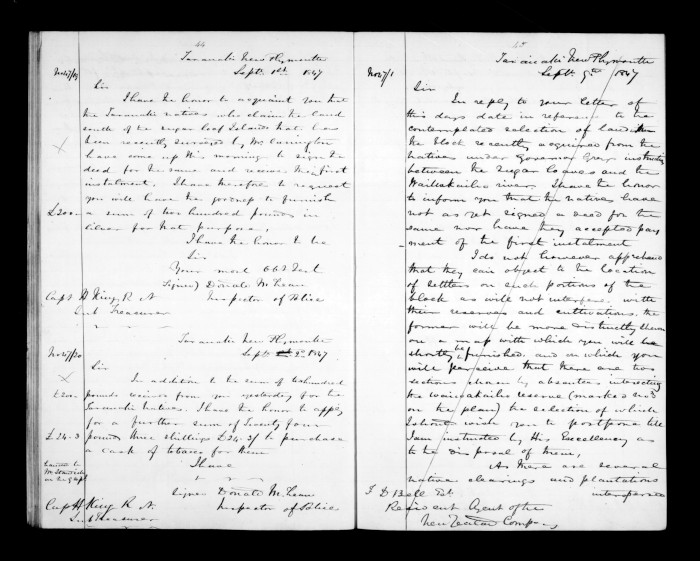 44
Taranaki New Plymouth
Septr 1st 1847
No 47/19
Sir
I have the honor to acquaint you that
the Taranaki natives who claim the land
south of the sugar loaf Islands that has
been recently surveyed by Mr Carrington
have come up this morning to sign the
deed for the same and receive the first
instalment. I have therefore to request
you will have the goodness to furnish
£200 a sum of two hundred pounds in
silver for that purpose,
I have the honor to be
Sir
Your most obt Servt
Signed) Donald McLean
Capt H King R N Inspector of Police
Sub Treasurer
Taranaki New Plymouth
Septr 2d 1847
No 47/20
Sir
In addition to the sum of two hundred
£200 pounds received from you yesterday for the
Taranaki natives. I have the honor to apply
for a further sum of Twenty four
£24.3 pounds three shillings £24.3/ to purchase
a cask of tobacco for them,
I have
Signed Donald McLean
Capt H King R N Inspector of Police
Sub Treasurer
45
Taranaki New Plymouth
Septr 9th 1847
No 47/1
Sir
In reply to your letter of
this days date in reference to the
contemplated selection of land in
the block recently acquired from the
natives under Governor Greys instructions
between the Sugar Loaves and the
Waiwakaiho river I have the honor
to inform you that the natives have
not as yet signed a deed for the
same nor have they accepted pay
ment of the first instalment
I do not however apprehend
that they can object to the location
of settlers on such portions of the
block as will not interfere with
their reserves and cultivations. the
former will be more distinctly shewn
on a map with which you will be
shortly be furnished, and on which you
will perceive that there are two
sections chosen by absentees intersecting
the waiwakaiho reserve (marked
on the plan) the selection of which
I should wish you to postpone till
I am instructed by His Excellency as
to the disposal of them,
As there are several
native clearings and plantations
interspersed
F D Bell Esq
Resident Agent of the
New Zealand Company